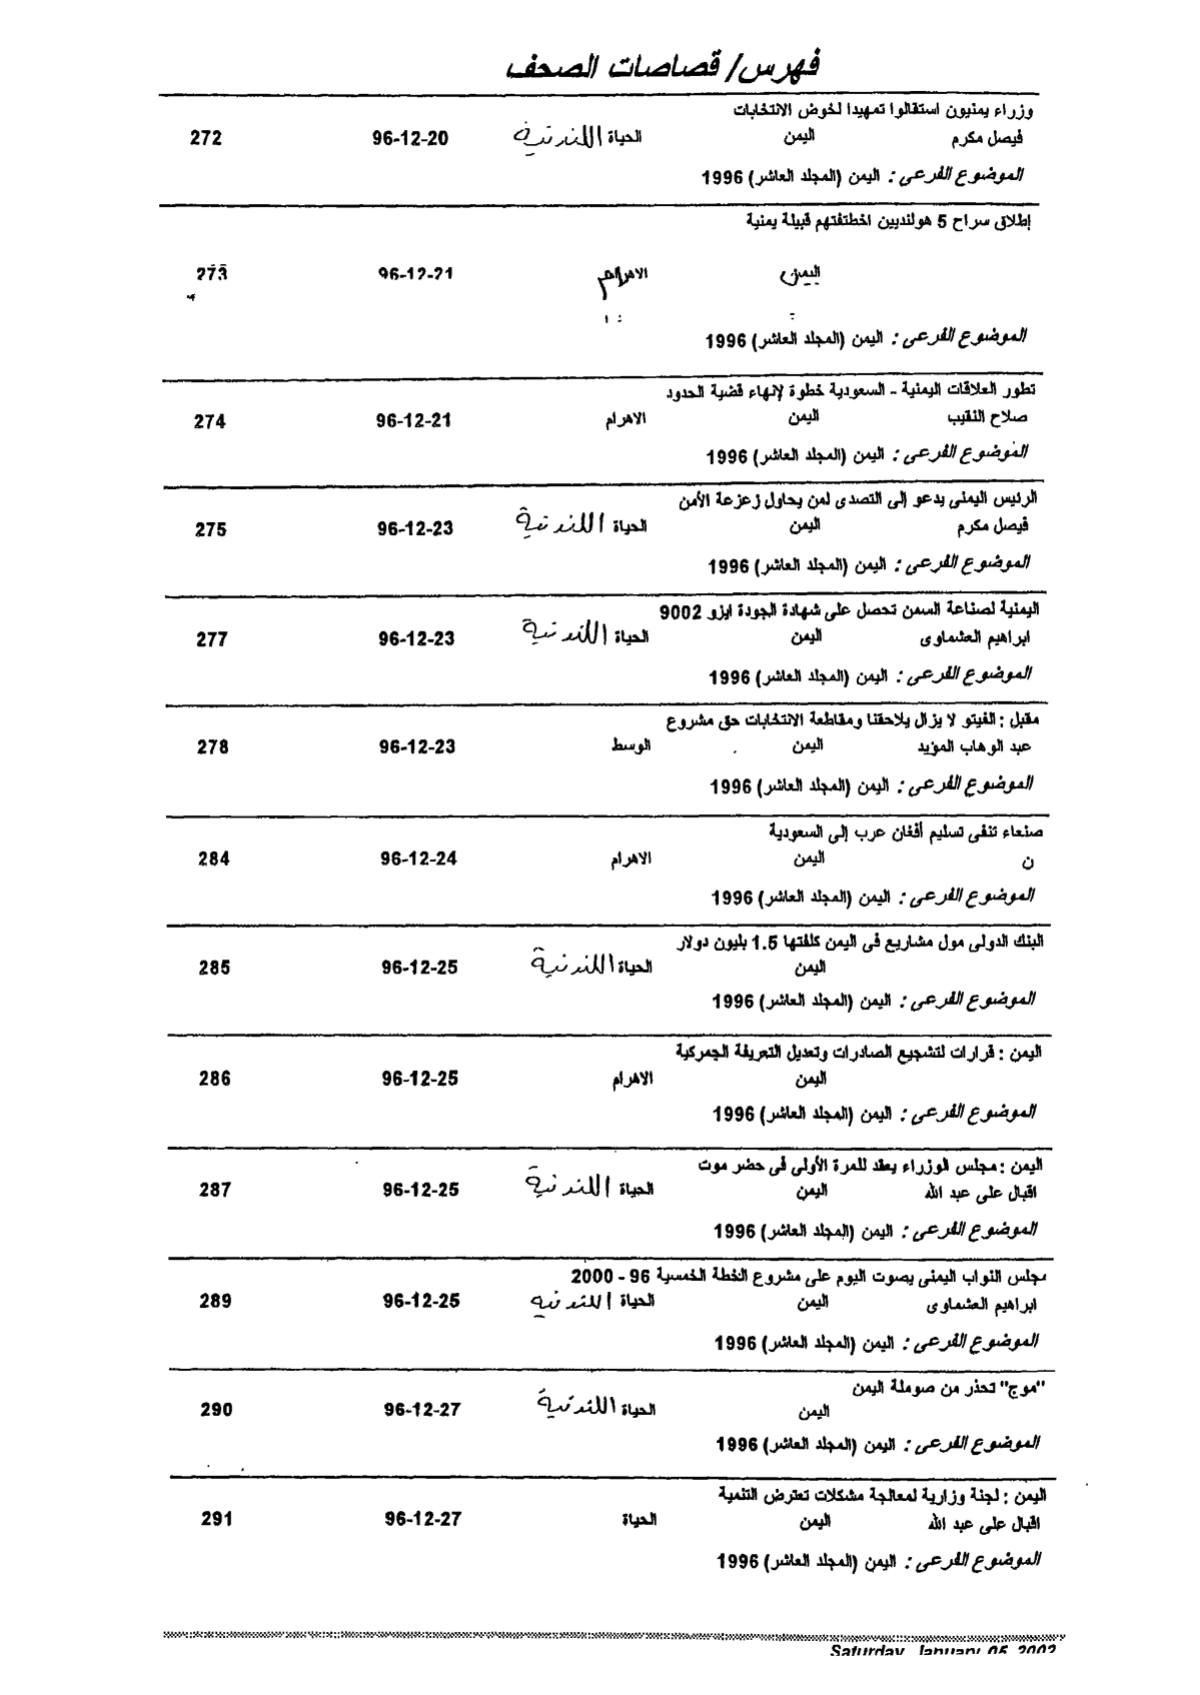 فهرس/ قصاصات الصحف
وزراء يمنيون استقالوا تمهيدا لخوض الانتخابات
فيصل مكرم اليمن الحياة اللندنية 96-12-20 272
الموضوع الفرعى : اليمن (المجلد العاشر) 1996
إطلاق سراح 5 هولنديين اختطفتهم قبيلة يمنية
اليمن الاهرام 96-12-21 273
الموضوع الفرعى : اليمن (المجلد العاشر) 1996
تطور العلاقات اليمنية - السعودية خطوة لإنهاء قضية الحدود
صلاح النقيب اليمن الاهرام 96-12-21 274
الموضوع الفرعى : اليمن (المجلد العاشر) 1996
الرئيس اليمنى يدعو إلى التصدى لمن يحاول زعزعة الأمن
فيصل مكرم اليمن الحياة اللندنية 96-12-23 275
الموضوع الفرعى : اليمن (المجلد العاشر) 1996
اليمنية لصناعة السمن تحصل على شهادة الجودة ايزو 9002
ابراهيم العشماوى اليمن الحياة اللندنية 96-12-23 277
الموضوع الفرعى : اليمن (المجلد العاشر) 1996
مقبل : الفيتو لا يزال يلاحقنا ومقاطعة الانتخابات حق مشروع
عبد الوهاب المؤيد اليمن الوسط 96-12-23 278
الموضوع الفرعى : اليمن (المجلد العاشر) 1996
صنعاء تنفى تسليم أفغان عرب إلى السعودية
ن اليمن الاهرام 96-12-24 284
الموضوع الفرعى : اليمن (المجلد العاشر) 1996
البنك الدولى مول مشاريع فى اليمن كلفتها 1.5 بليون دولار
اليمن الحياة اللندنية 96-12-25 285
الموضوع الفرعى : اليمن (المجلد العاشر) 1996
اليمن : قرارات لتشجيع الصادرات وتعديل التعريفة الجمركية
اليمن الاهرام 96-12-25 286
الموضوع الفرعى : اليمن (المجلد العاشر) 1996
اليمن : مجلس الوزراء يعقد للمرة الأولى فى حضر موت
اقبال على عبد الله اليمن الحياة اللندنية 96-12-25 287
الموضوع الفرعى : اليمن (المجلد العاشر) 1996
مجلس النواب اليمنى يصوت اليوم على مشروع الخطة الخمسية 96 - 2000
ابراهيم العشماوى اليمن الحياة اللندنية 96-12-25 289
الموضوع الفرعى : اليمن (المجلد العاشر) 1996
"موج" تحذر من صوملة اليمن
اليمن الحياة اللندنية 96-12-27 290
الموضوع الفرعى : اليمن (المجلد العاشر) 1996
اليمن : لجنة وزارية لمعالجة مشكلات تعترض التنمية
اقبال على عبد الله اليمن الحياة 96-12-27 291
الموضوع الفرعى : اليمن (المجلد العاشر) 1996
Saturday, January 05, 2002